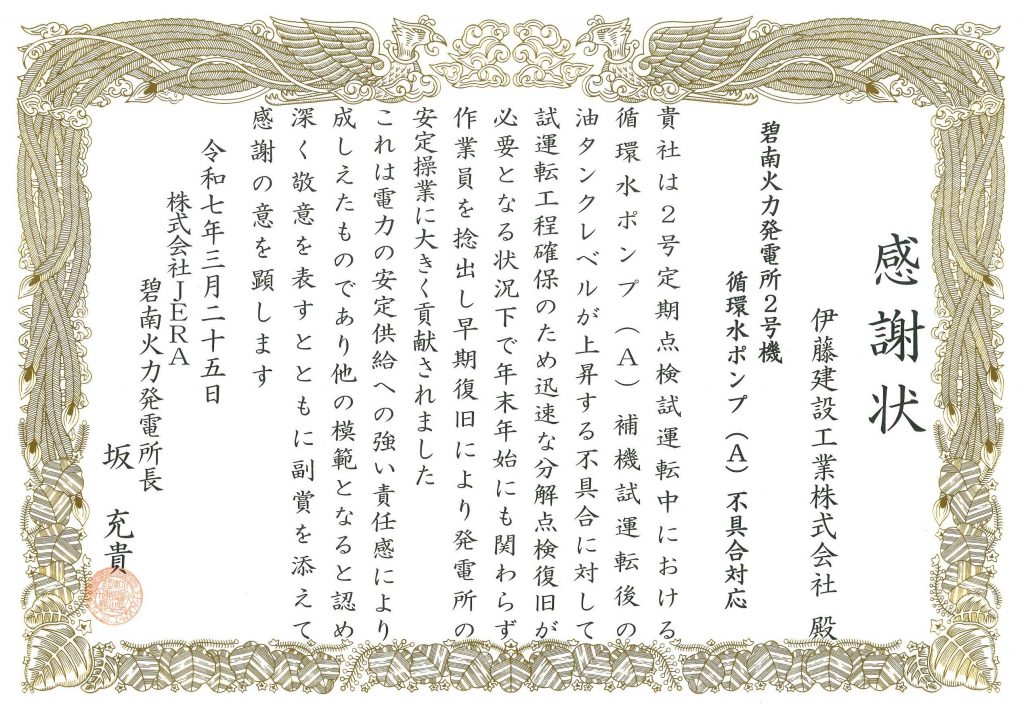 感謝状
伊藤建設工業株式会社 殿
碧南火力発電所2号機
循環水ポンプ（A）不具合対応
貴社は2号定期点検試運転中における
循環水ポンプ（A）補機試運転後の
油タンクレベルが上昇する不具合に対して
試運転工程確保のため迅速な分解点検復旧が
必要となる状況下で年末年始にも関わらず
作業員を捻出し早期復旧により発電所の
安定操業に大きく貢献されました
これは電力の安定供給への強い責任感により
成しえたものであり他の模範となると認め
深く敬意を表すとともに副賞を添えて
感謝の意を顕します
令和七年三月二十五日
株式会社JERA
碧南火力発電所長
坂 充貴